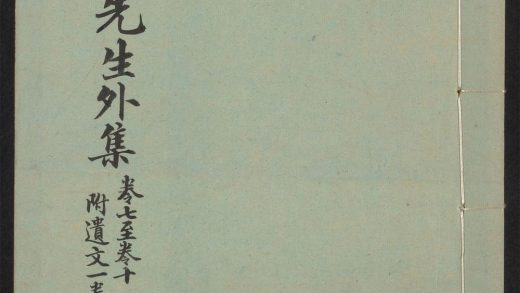 先生外集
卷七至卷十
附遺文一卷